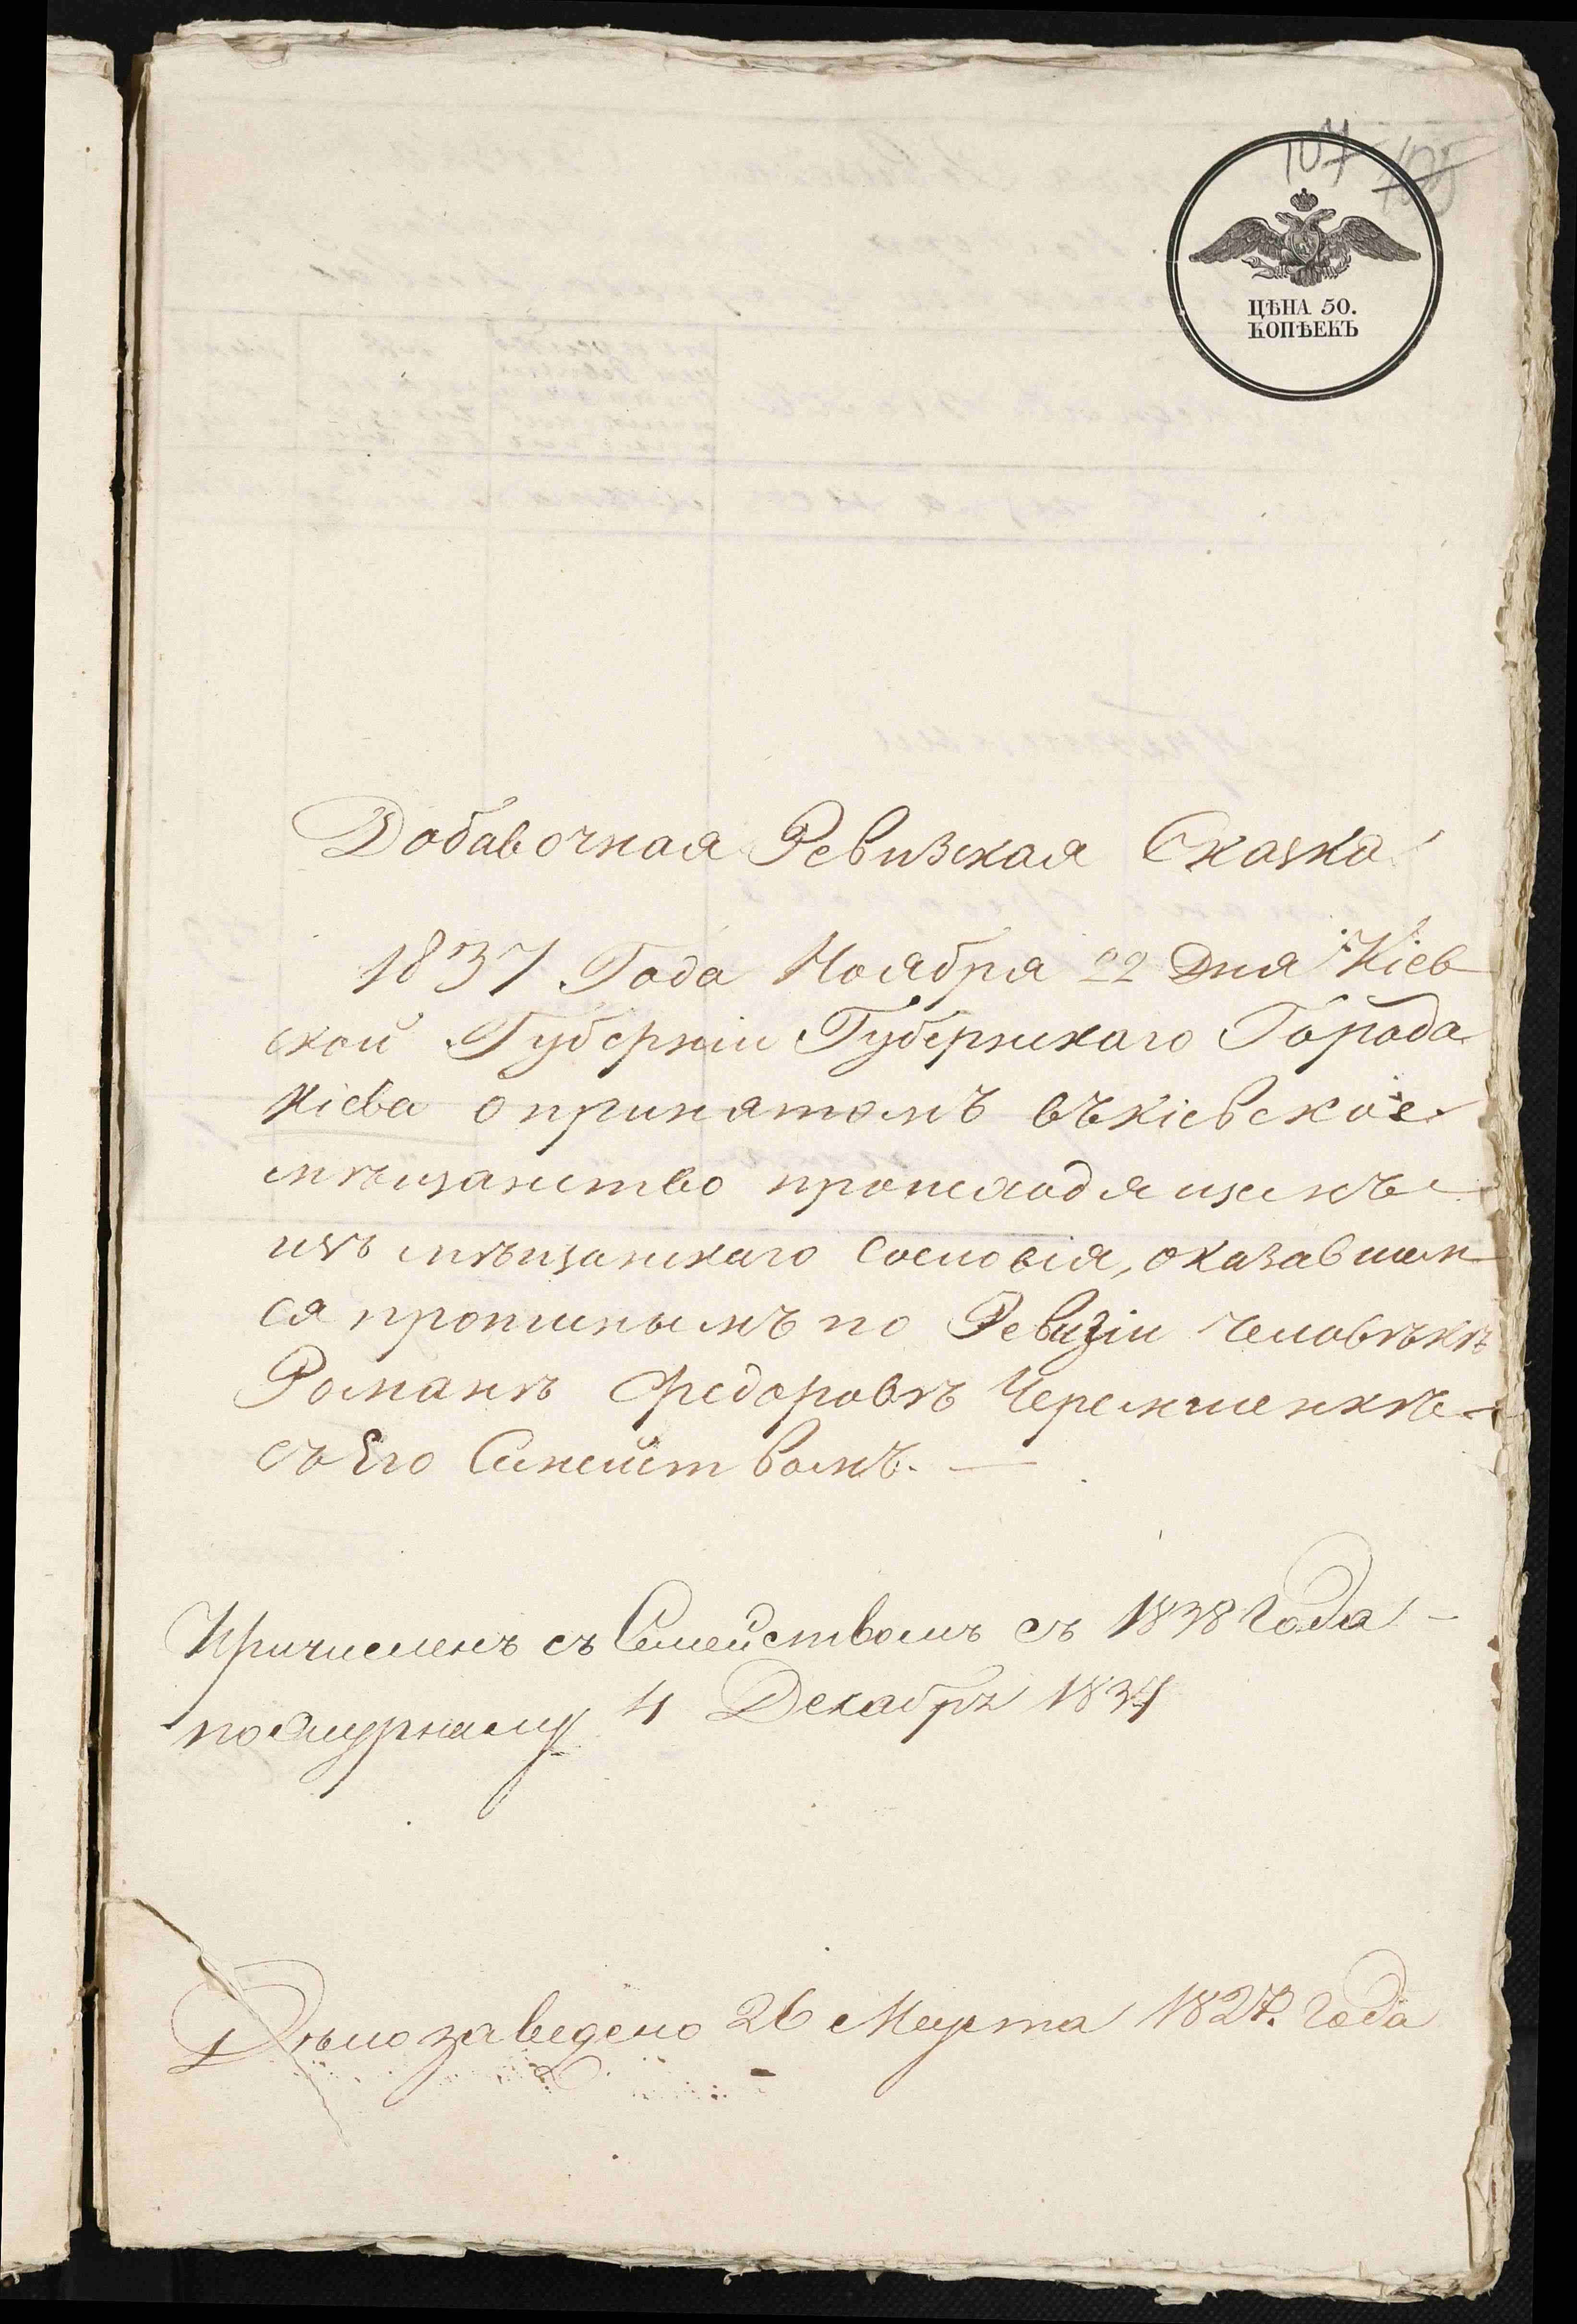 107 105
ЦѢНА 50.
КОПѢЕКЪ
Добавочная Ревизская Сказка
1837 Года Ноября 22 Дня Кіев
ской Губерніи Губернскаго Города
Кіева о принятомъ въ кіевское
мѣщанство происходящемъ
изъ мѣщанскаго сословія, оказавшем
ся прописнымъ по Ревизіи человѣкѣ
Романѣ Федоровѣ Черемшенкѣ
съ Его Семейством̃ъ. —
Причисленъ съ Семействомъ съ 1838 года
по журналу 4 Декабря 1837
Дѣло заведено 26 Марта 1827. года